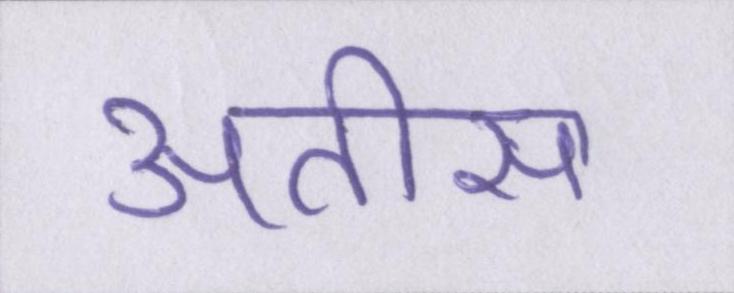 अतीस